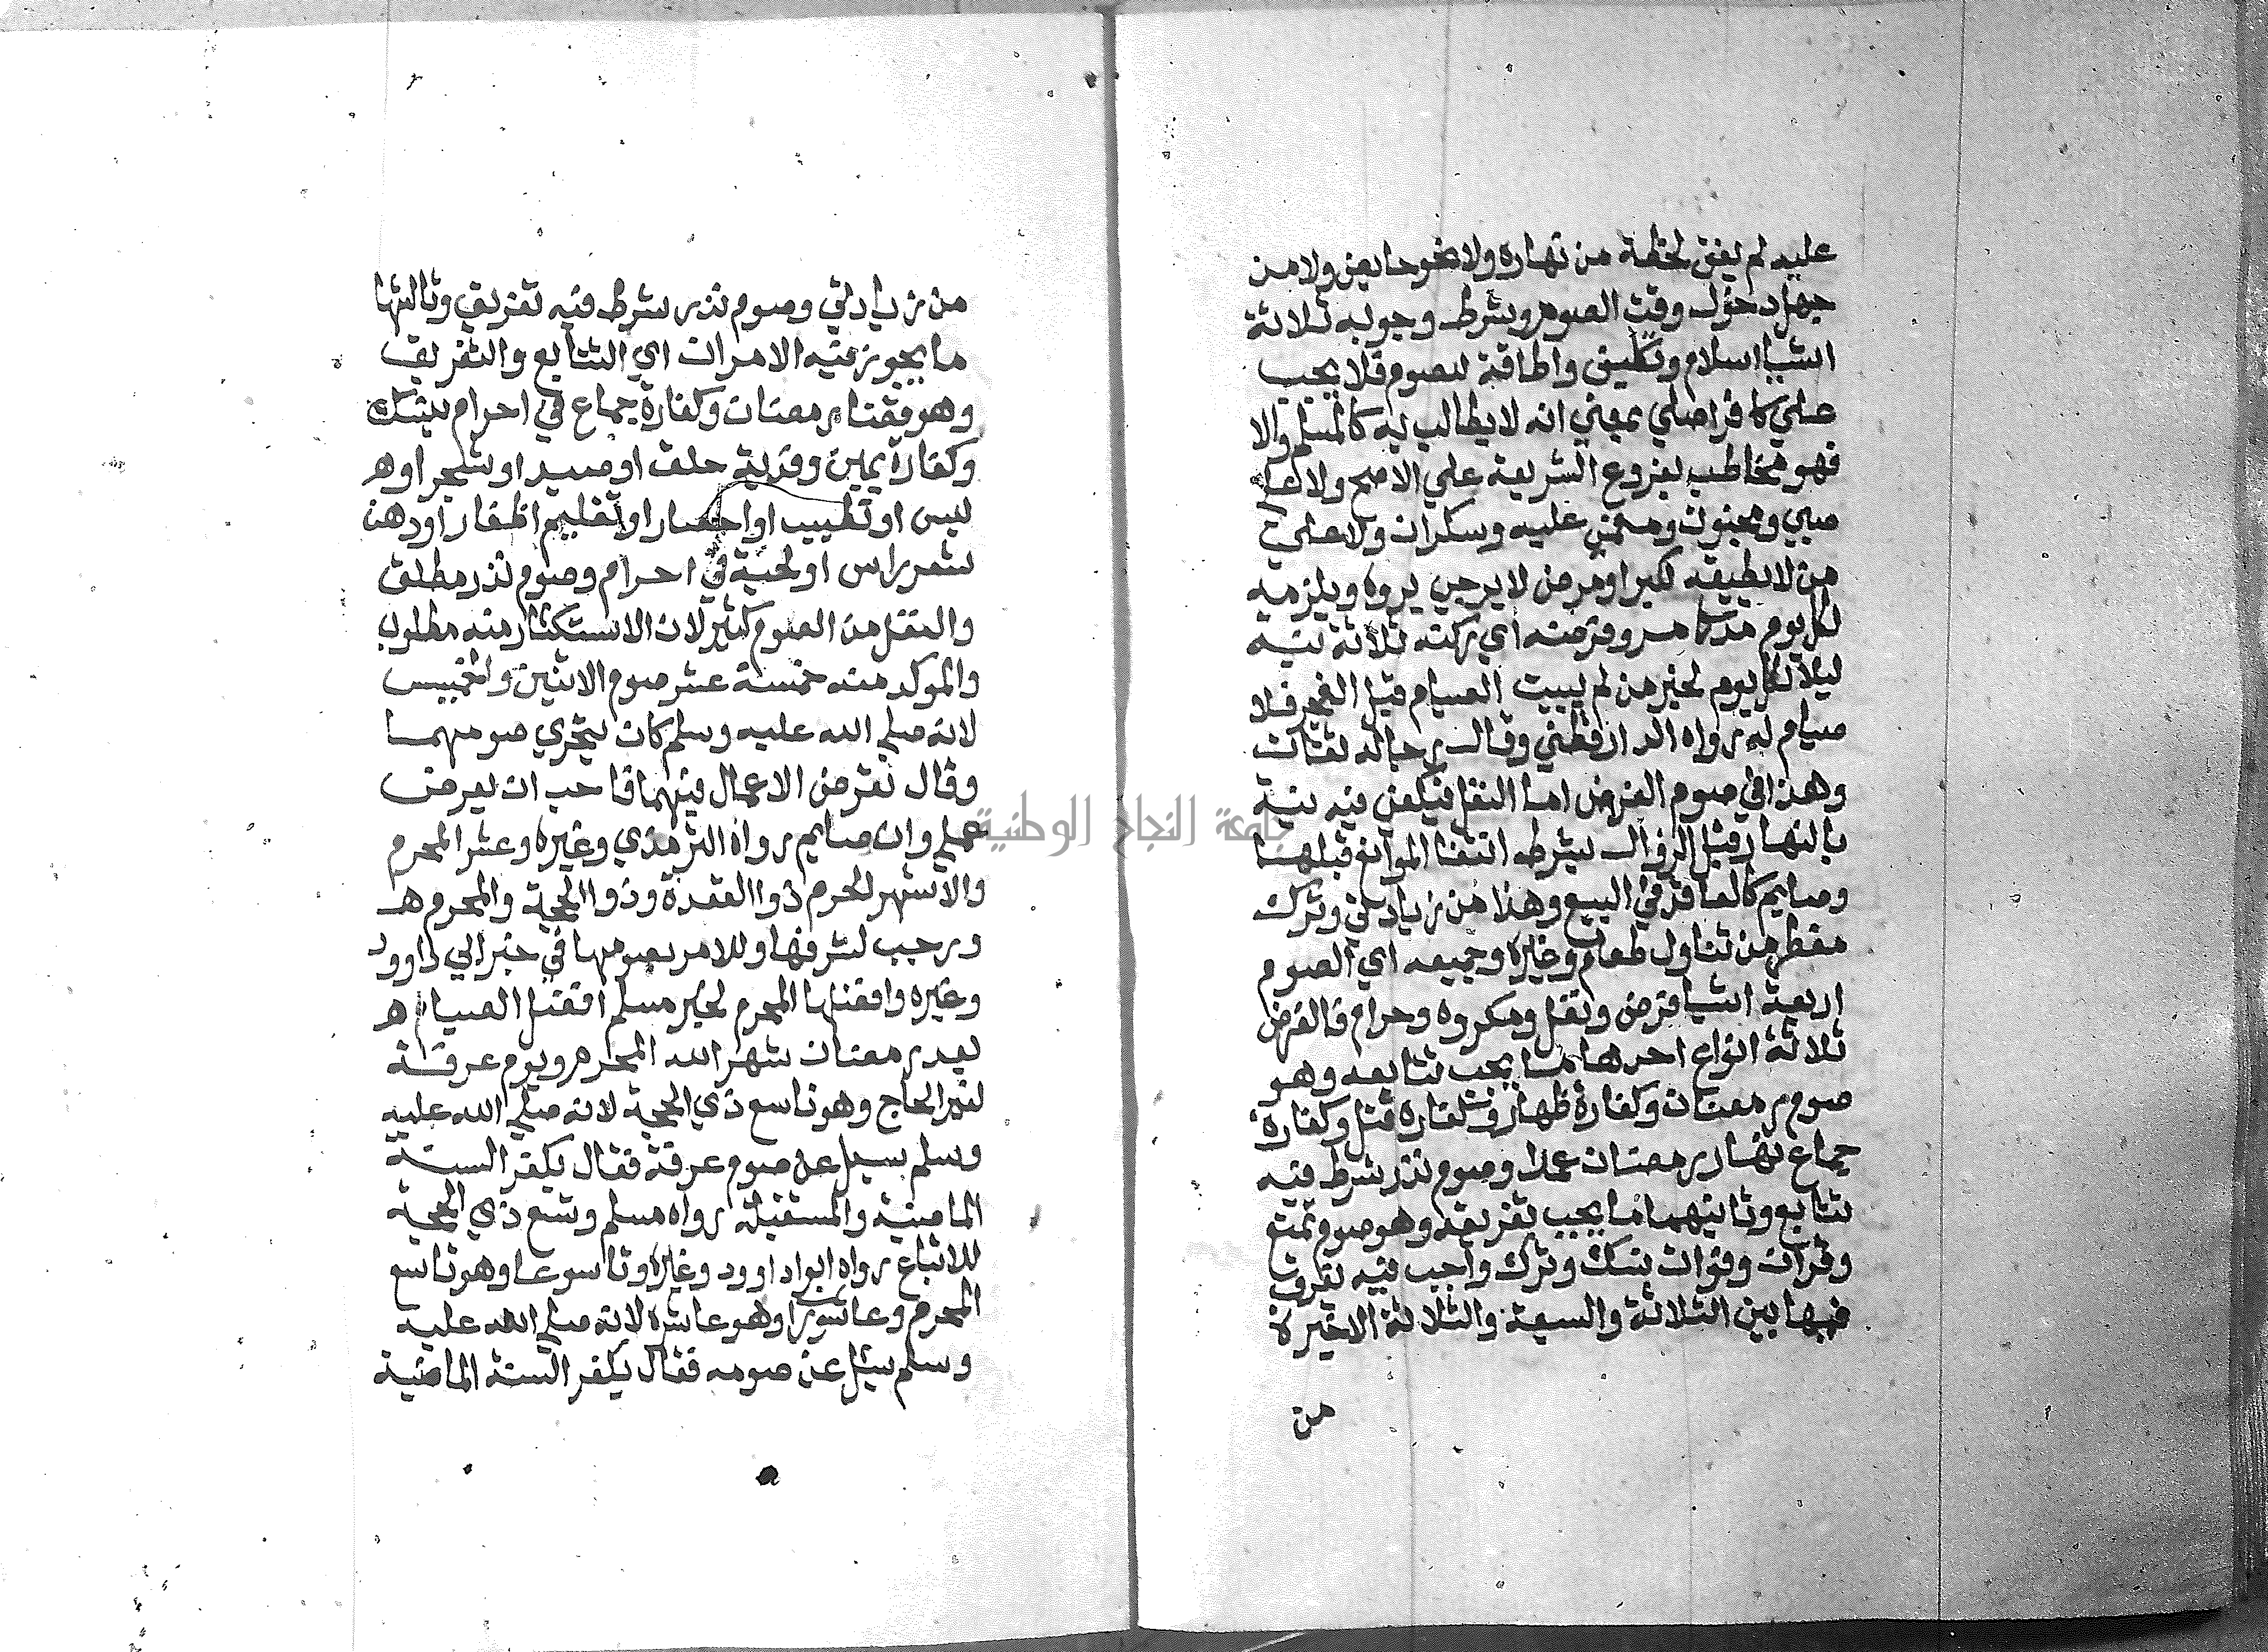 عليه لم يفق لحظة من نهاره ولا نحو حايض ولا من
جهل دخول وقت الصوم وشرط وجوبه ثلاثة
اشيا اسلام وتكليف واطاقة للصوم فلا يجب
علي كافر اصلي بمعني انه لا يطالب به كالمسلم والا
فهو مخاطب بفروع الشريعة علي الاصح ولا علي
صبي ومجنون ومغمي عليه وسكران ولا علي
من لا يطيقه لكبر او مرض لا يرجي بروه ويلزمه
لكل يوم مد كما مر وفرضه اي ركنه ثلاثة نية
ليلا لكل يوم لخبر من لم يبيت الصيام قبل الفجر فلا
صيام له رواه الدارقطني وقال رجاله ثقات
وهذا في صوم الفرض اما النفل فيكفي فيه نية
بالنهار قبل الزوال بشرط انتفا الموانع قبلها
وصايم كالعاقد في البيع وهذا من زيادتي وترك
مفطر من تناول طعام وغيره وجميعه اي الصوم
اربعة اشيا فرض ونفل ومكروه وحرام فالفرض
ثلاثة انواع احدها ما يجب تتابعه وهو
صوم رمضان وكفارة ظهار وكفارة قتل وكفارة
جماع نهار رمضان عمدا وصوم نذر شرط فيه
تتابع وثانيهما ما يجب تفريقه وهو صوم تمتع
وقران وفوات نسك وترك واجب فيه تفرق
فيها بين الثلاثة والسبعة والثلاثة الاخيرة
من
من زيادتي وصوم نذر شرط فيه تفريق وثالثها
ما يجوز فيه الامران اي التتابع والتفريق
وهو قضا رمضان وكفارة جماع في احرام نسك
وكفارة يمين وفدية حلق او صيد او شجر او
لبس او تطييب او احصار او تقليم اظفار او دهن
شعر راس او لحية في احرام وصوم نذر مطلق
والنفل من الصوم كثير لان الاستكثار منه مطلوب
والموكد منه خمسة عشر صوم الاثنين والخميس
لانه صلي الله عليه وسلم كان يتحري صومهما
وقال تعرض الاعمال فيهما فاحب ان يعرض
عملي وانا صايم رواه الترمذي وغيره وعشر المحرم
والاشهر الحرم ذوا القعدة وذوا الحجة والمحرم
ورجب لشرفها وللامر بصومها في خبر ابي داوود
وغيره وافضلها المحرم لخبر مسلم افضل الصيام
بعد رمضان شهر الله المحرم ويوم عرفة
لغير الحاج وهو تاسع ذي الحجة لانه صلي الله عليه
وسلم سيل عن صوم عرفة فقال يكفر السنة
الماضية والمستقبلة رواه مسلم وتسع ذي الحجة
للاتباع رواه ابو داوود وغيره وتاسوعا وهو تاسع
المحرم وعاشورا وهو عاشره لانه صلي الله عليه
وسلم سيل عن صومه فقال يكفر السنة الماضية
جامعة النجاح الوطنية